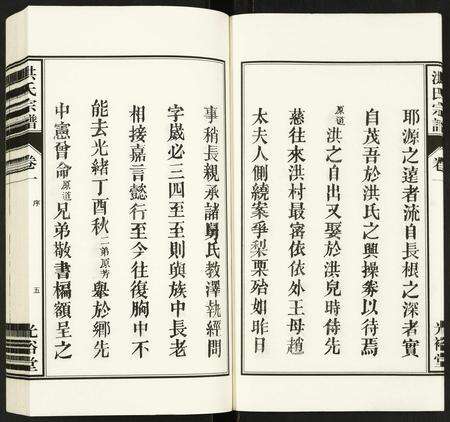 洪氏宗譜
卷一
耶源之遠者流自長根之深者實
自茂吾於洪氏之興操劵以待焉
原道洪之自出又娶於洪兒時侍先
慈往來洪村最寄依依外王母趙
太夫人側繞案爭梨栗殆如昨日
光裕堂
事稍長親承諸舅氏教澤執經問
字歲必三四至至則與族中長老
相接嘉言懿行至今往復胸中不
能去光緒丁酉秋二弟原芳舉於鄉先
中憲曾命原道兄弟敬書楄額呈之
洪氏宗譜
卷一
序
五
光裕堂